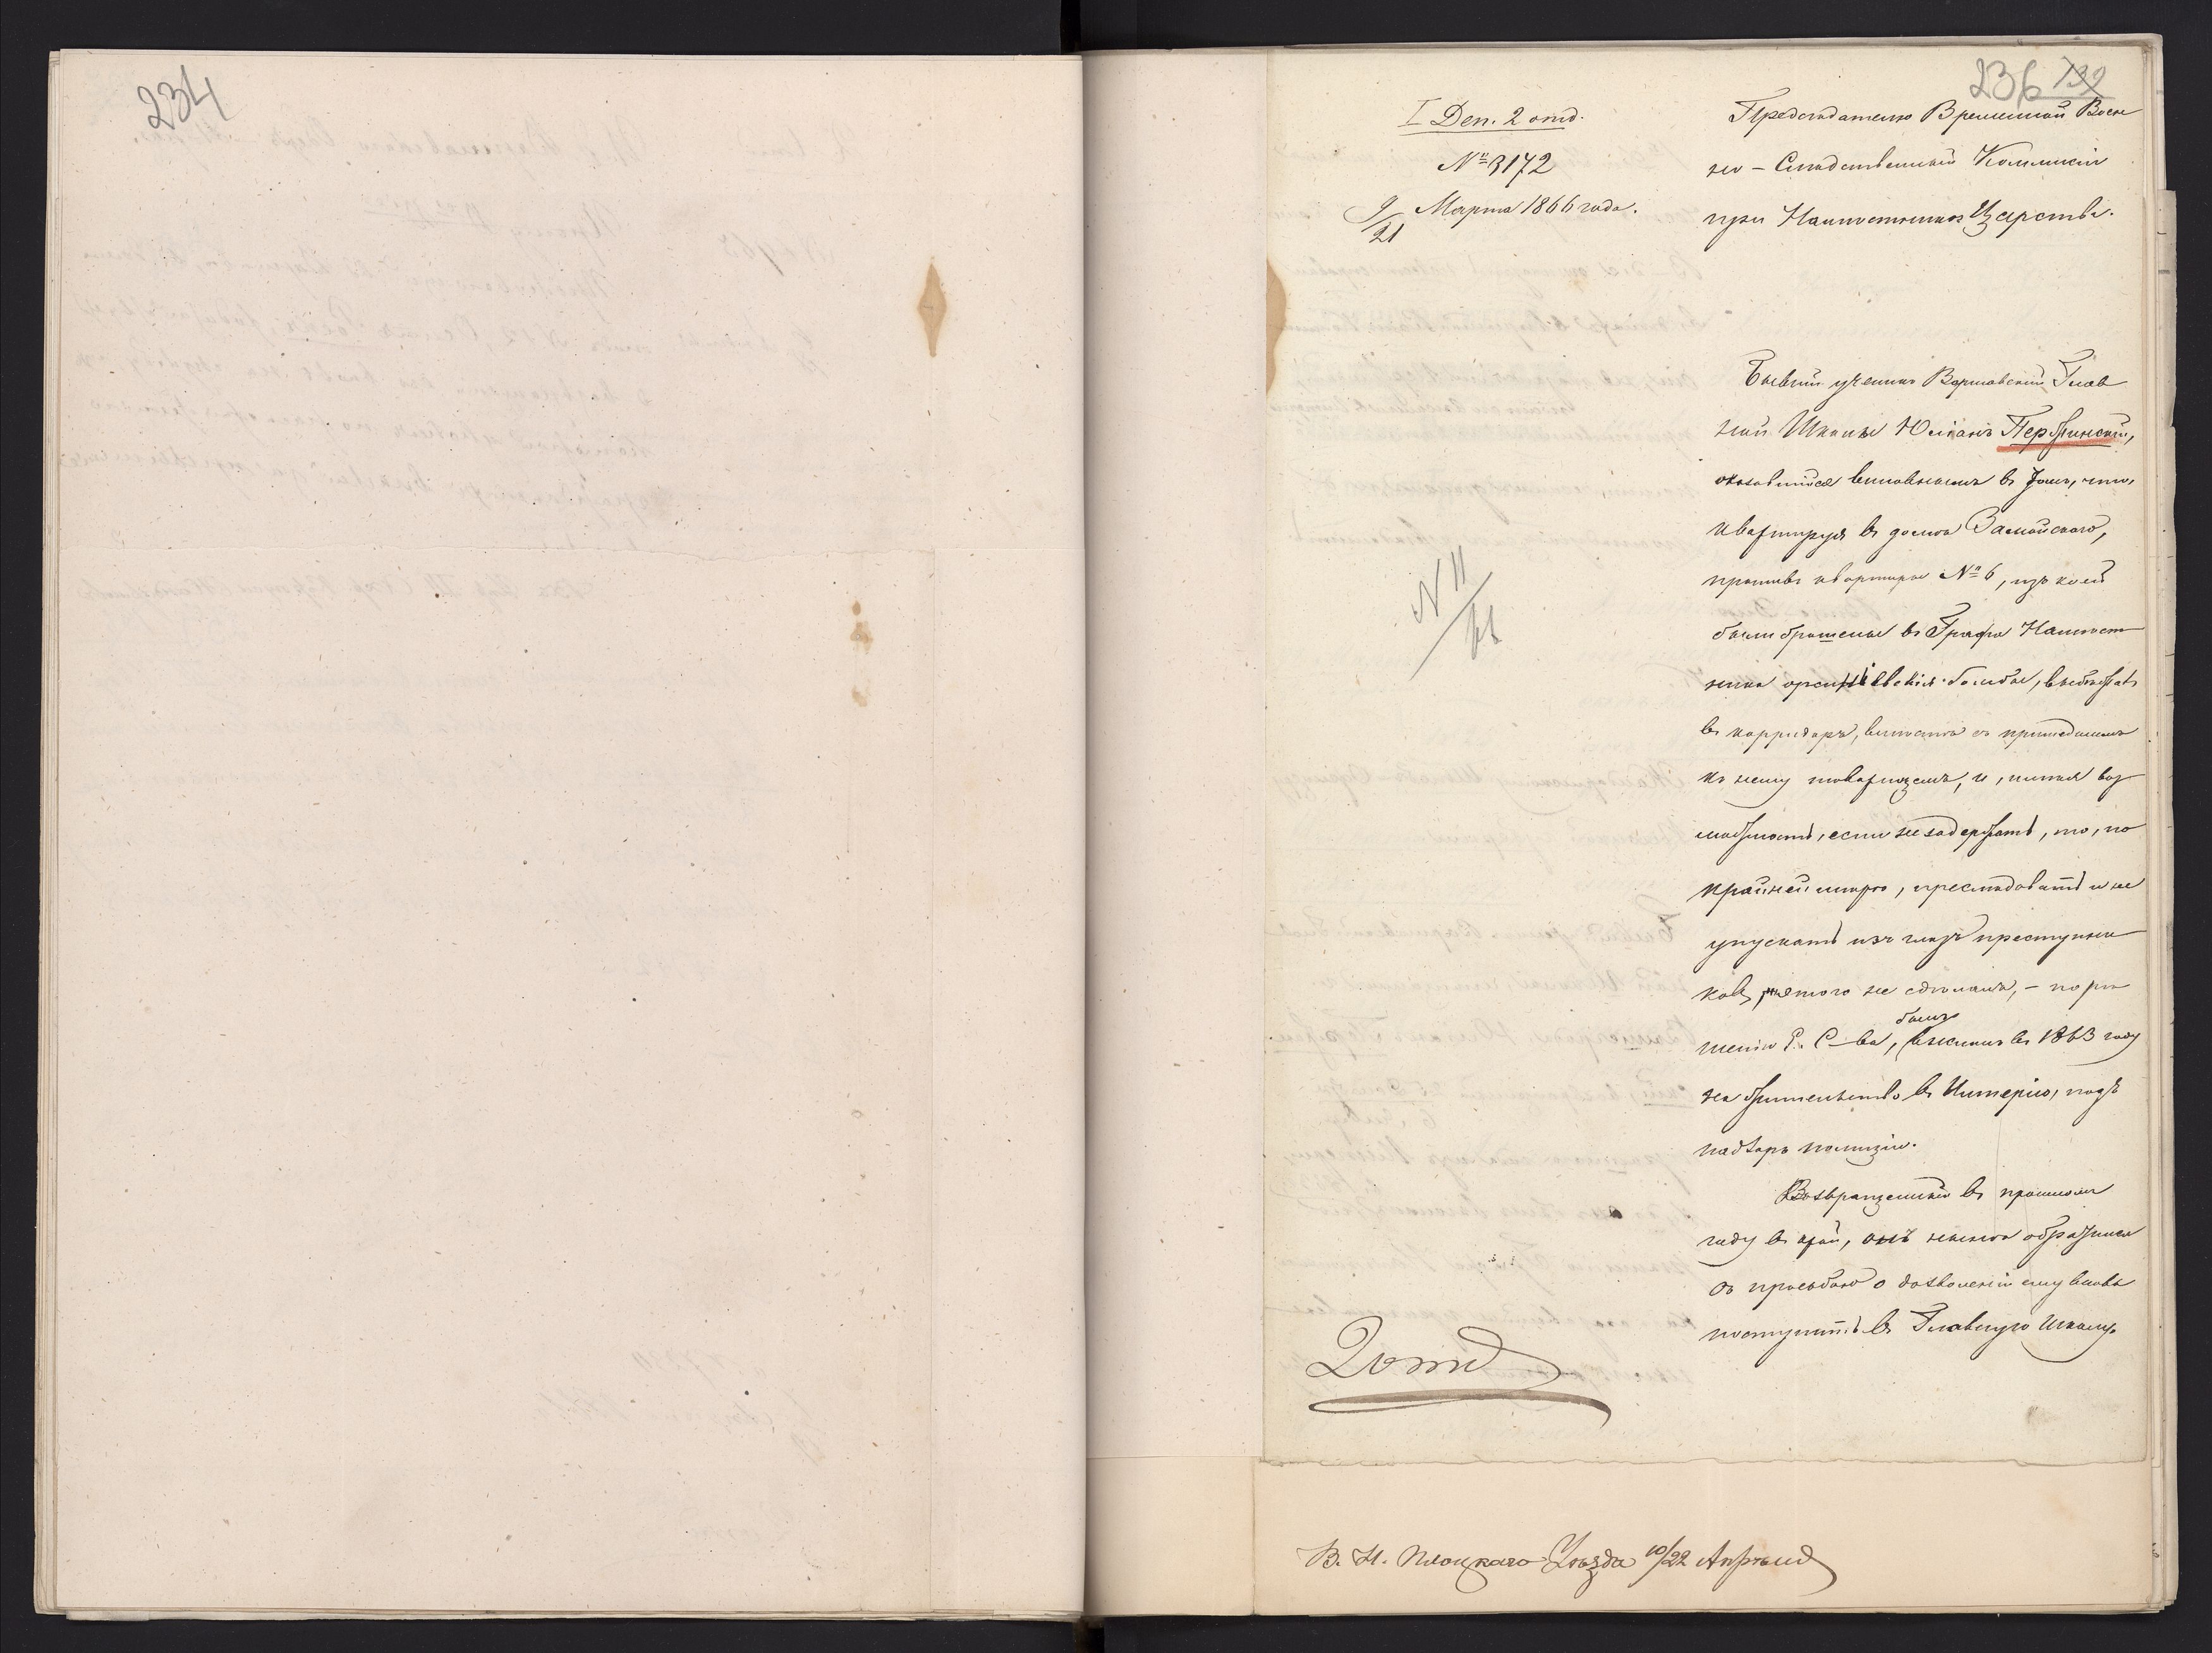 234
236 132
I Деп. 2 отд.
№ 3172
9/21 Марта 1866 года.
Председателю Временной Воен
но – Следственной Коммисіи
при Намѣстникѣ Царства.
Бывшій ученикъ Варшавской Глав
ной Школы Юліанъ Пержинскій,
оказавшійся виновнымъ въ томъ, что,
квартируя въ домѣ Замойскаго,
противъ квартиры № 6, изъ коей
были брошены въ Графа Намѣст
ника орсиніевскія бомбы, выбѣжавъ
въ корридоръ, вмѣстѣ съ пришедшимъ
къ нему товарищемъ, и, имѣя воз
можность, если не задержать, то, по
крайней мѣрѣ, преслѣдовать и не
упускать изъ глазъ преступни
ковъ, этого не сдѣлалъ, – по рѣ
шенію Е. С–ва, былъ высланъ въ 1863 году
на жительство въ Имперію, подъ
надзоръ полиціи.
Возвращенный въ прошломъ
году въ край, онъ нынѣ обратился
съ просьбою о дозволеніи ему вновь
поступить въ Главную Школу.
N 11/66
2 отд
В. Н. Плоцкаго Уѣзда 10/22 Апрѣля